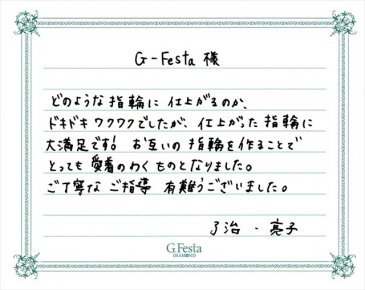 G-Festa 様
どのような指輪に仕上がるのか、
ドキドキワクワクでしたが、仕上がった指輪に
大満足です! お互いの指輪を作ることで
とっても愛着のわくものとなりました。
ご丁寧なご指導 有難うございました。
了治・亮子
G.Festa
DIAMOND